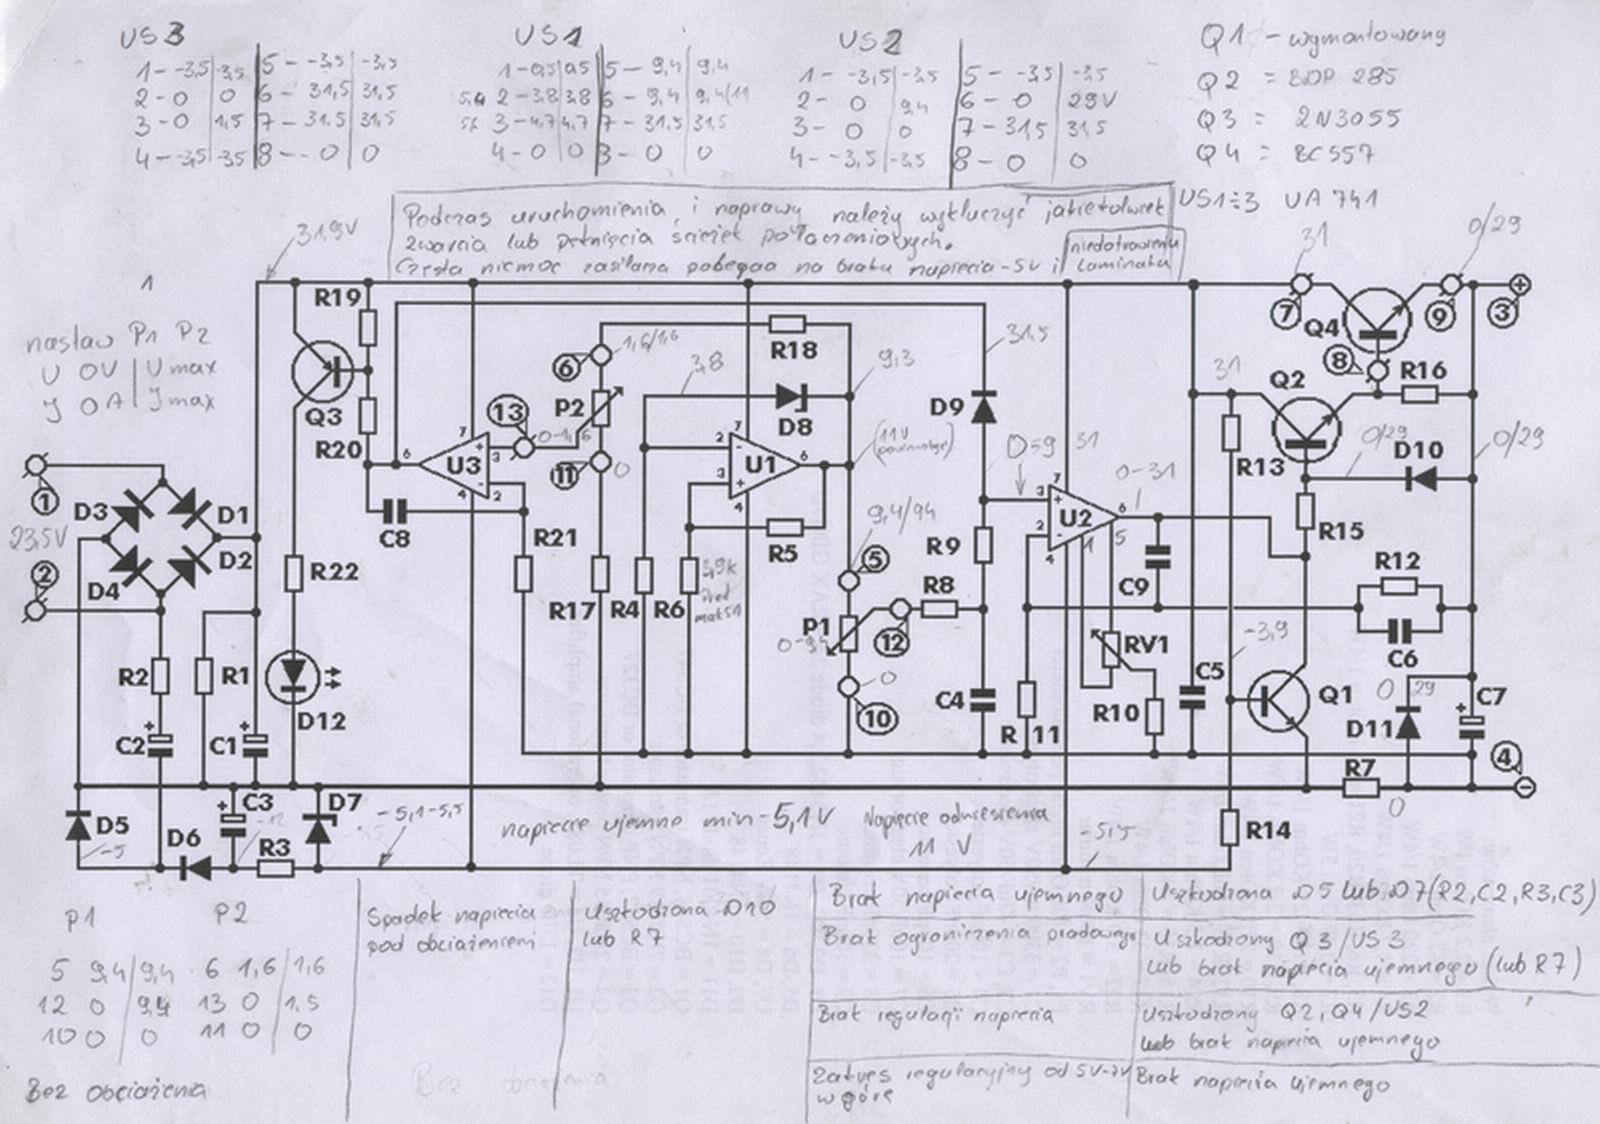 US3
1 - -3,5 | -3,5 | 5 - -3,5 | -3,5
2 - 0 | 0 | 6 - 31,5 | 31,5
3 - 0 | 1,5 | 7 - 31,5 | 31,5
4 - -3,5 | -3,5 | 8 - - 0 | 0
US1
1 - 0,5 | 0,5 | 5 - 9,4 | 9,4
2 - 3,8 | 3,8 | 6 - 9,4 | 9,4/11
3 - 4,7 | 4,7 | 7 - 31,5 | 31,5
4 - 0 | 0 | 8 - 0 | 0
US2
1 - -3,5 | -3,5 | 5 - -3,5 | -3,5
2 - 0 | 9,4 | 6 - 0 | 29V
3 - 0 | 0 | 7 - 31,5 | 31,5
4 - -3,5 | -3,5 | 8 - 0 | 0
Q1 - wymontowany
Q2 = BDP 285
Q3 = 2N3055
Q4 = BC557
US1÷3 UA 741
Podczas uruchomienia i naprawy należy wykluczyć jakiekolwiek
zwarcia lub pęknięcia ścieżek połączeniowych.
Częsta niemoc zasilania polega na braku napięcia -5V i niedotrawieniu
laminatu
31,9V
31
0/29
1
nastaw P1 P2
U 0V | Umax
J 0A | Jmax
R19
Q3
R20
7
6
U3
3
2
4
C8
13
6
1,6/1,6
P2
0-1,6
11
0
R18
3,8
D8
9,3
2
3
7
6
4
U1
(11V
R5
9,4/94
5
P1
12
0
10
D9
31,5
0-31
31
3
2
7
6
4
1
5
U2
C9
R9
R8
C4
R 11
RV1
R10
C5
7
Q4
9
3
8
Q2
R16
R13
0/29
D10
0/29
R15
R12
C6
-3,9
Q1
0
29
D11
C7
4
R7
0
R14
1
23,5V
2
D3
D1
D4
D2
R22
R21
R17
R4
R6
3,9k
R2
R1
D12
C2
C1
D5
-5
D6
C3
-12
R3
D7
-5,1-5,5
-5,5
napięcie ujemne min -5,1V
Napięcie odniesienia
11 V
P1 P2
5 9,4/9,4 6 1,6/1,6
12 0 9,4 13 0 1,5
10 0 0 11 0 0
Bez obciążenia
Spadek napięcia
pod obciążeniem
Uszkodzona D10
lub R7
Bez obciążenia
Brak napięcia ujemnego
Uszkodzona D5 lub D7 (R2, C2, R3, C3)
Brak ograniczenia prądowego
Uszkodzony Q3/US3
lub brak napięcia ujemnego (lub R7)
Brak regulacji napięcia
Uszkodzony Q2, Q4/US2
lub brak napięcia ujemnego
Zakres regulacyjny od 5V-7V
w górę
Brak napięcia ujemnego